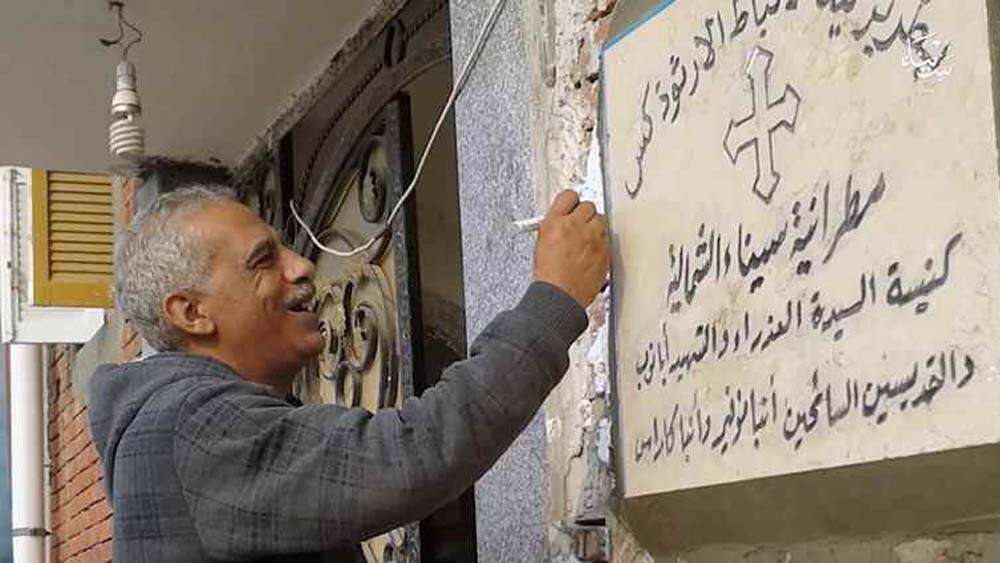 الاقباط الارثوذكس
مطرانية سيناء الشمالية
كنيسة السيدة العذراء والشهيد أبانوب
والقديسين السائحين أنبا موسى وأنبا كاراس